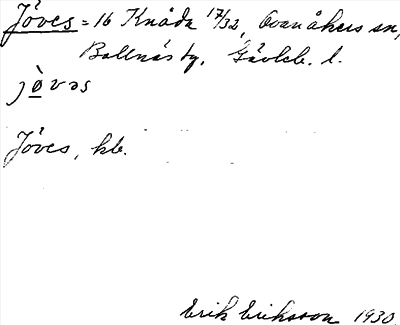 Jöves = 16 Knåda 17/32, Ovanåkers sn,
Bollnäs tg, Gävleb. l.
jò̱vəs
Jöves, kb.
Erik Eriksson 1930.